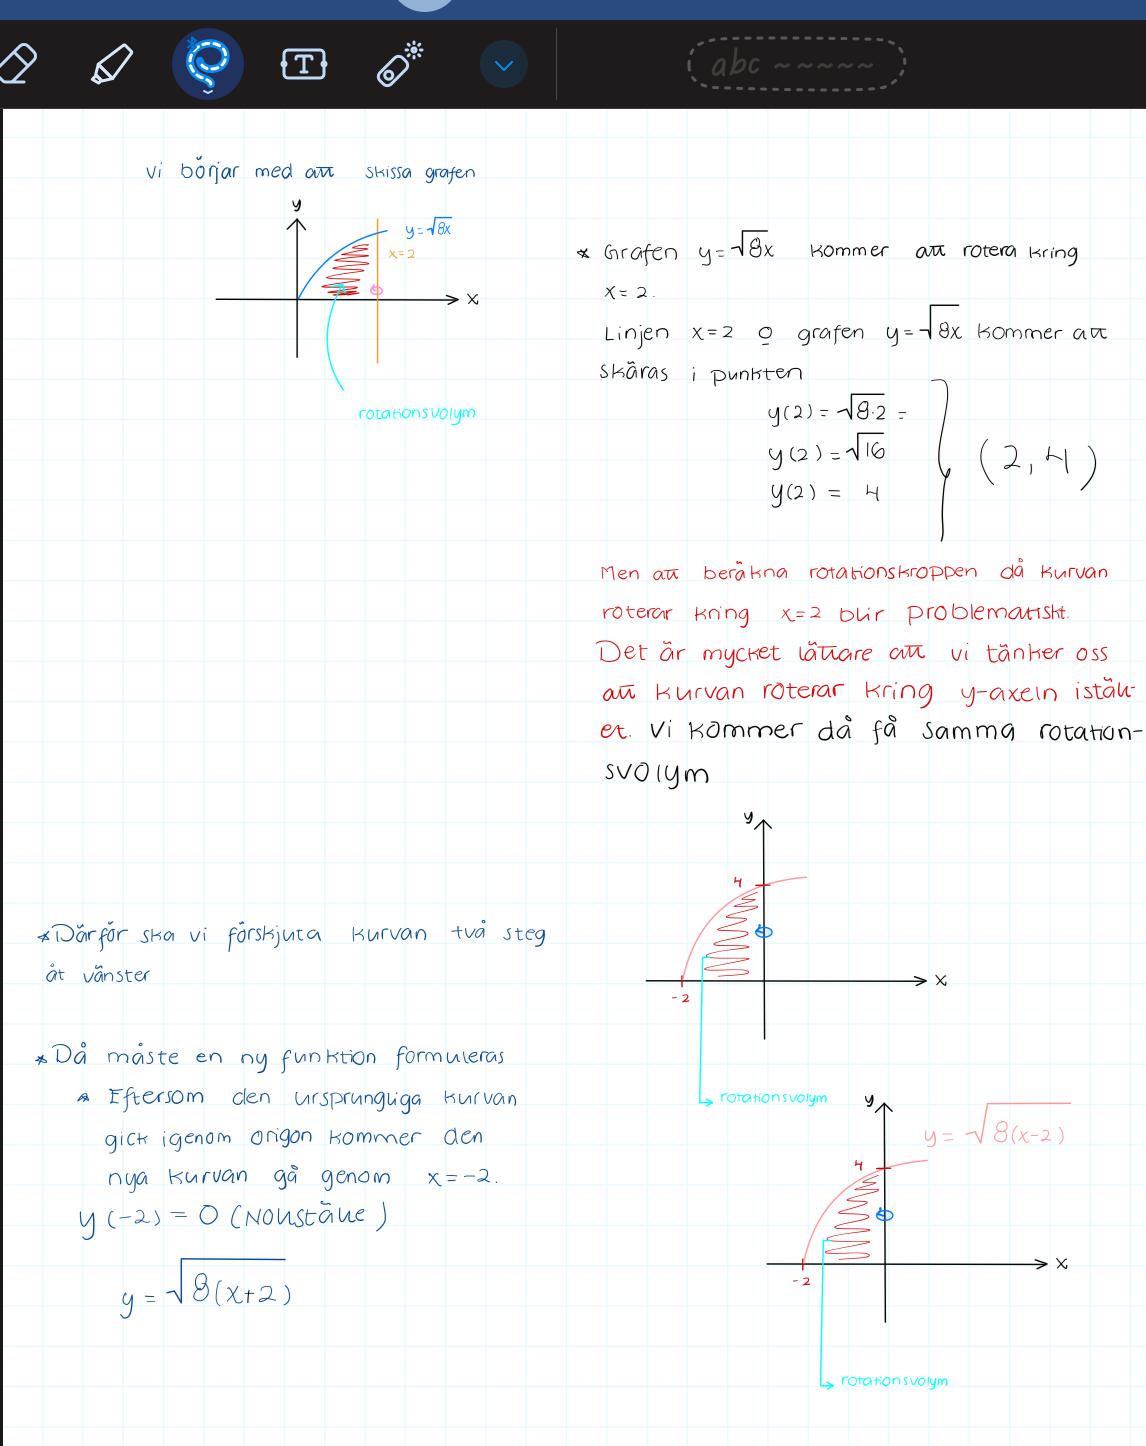 abc
vi börjar med att skissa grafen
y
y=√8x
x=2
x
rotationsvolym
* Grafen y=√8x kommer att rotera kring
x=2.
Linjen x=2 o grafen y=√8x kommer att
skäras i punkten
y(2)=√8·2 =
y(2)=√16
y(2) = 4
(2,4)
Men att beräkna rotationskroppen då kurvan
roterar kring x=2 blir problematiskt.
Det är mycket lättare att vi tänker oss
att kurvan roterar kring y-axeln iställ-
et. Vi kommer då få samma rotation-
svolym
y
4
x
-2
rotationsvolym
*Därför ska vi förskjuta kurvan två steg
åt vänster
*Då måste en ny funktion formuleras
* Eftersom den ursprungliga kurvan
gick igenom origon kommer den
nya kurvan gå genom x=-2.
y(-2) = 0 (Nollställe)
y = √8(x+2)
y
y = √8(x-2)
4
x
-2
rotationsvolym